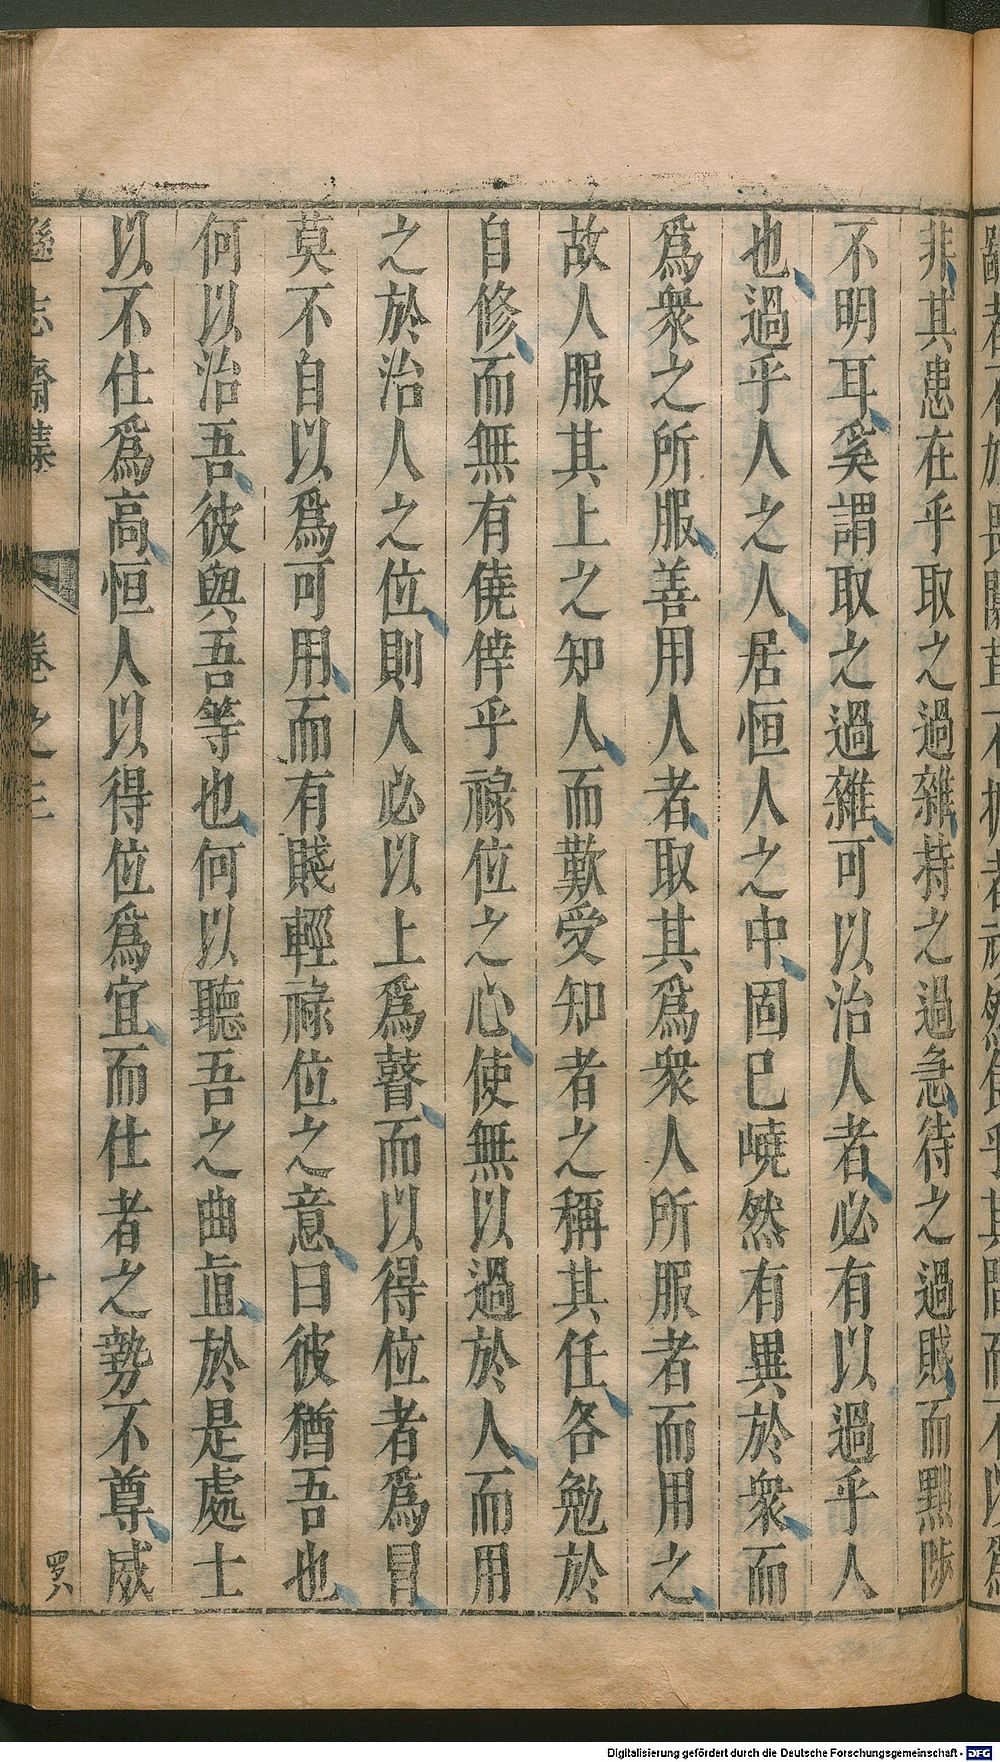 非其患在乎取之過雜持之過急待之過賤而黜陟
不明耳奚謂取之過雜可以治人者必有以過乎人
也過乎人之人居恒人之中固已嶢然有異於衆而
爲衆之所服善用人者取其爲衆人所服者而用之
故人服其上之知人而歎受知者之稱其任各勉於
自修而無有僥倖乎祿位之心使無以過於人而用
之於治人之位則人必以上爲瞽而以得位者爲冒
莫不自以爲可用而有賤輕祿位之意曰彼猶吾也
何以治吾彼與吾等也何以聽吾之曲直於是處士
以不仕爲高恒人以得位爲宜而仕者之勢不尊威
遜志齋集 卷之三 十
Digitalisierung gefördert durch die Deutsche Forschungsgemeinschaft - DFG